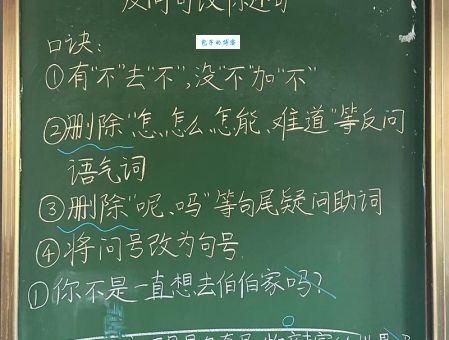 反问句改陈述句
兔子的博客
口诀:
①有"不"去"不",没"不"加"不"
②删除"怎、怎么、怎能、难道"等反问
语气词
③删除"呢、吗"等句尾疑问助词
④将问号改为句号
①你不是一直想去伯伯家吗?